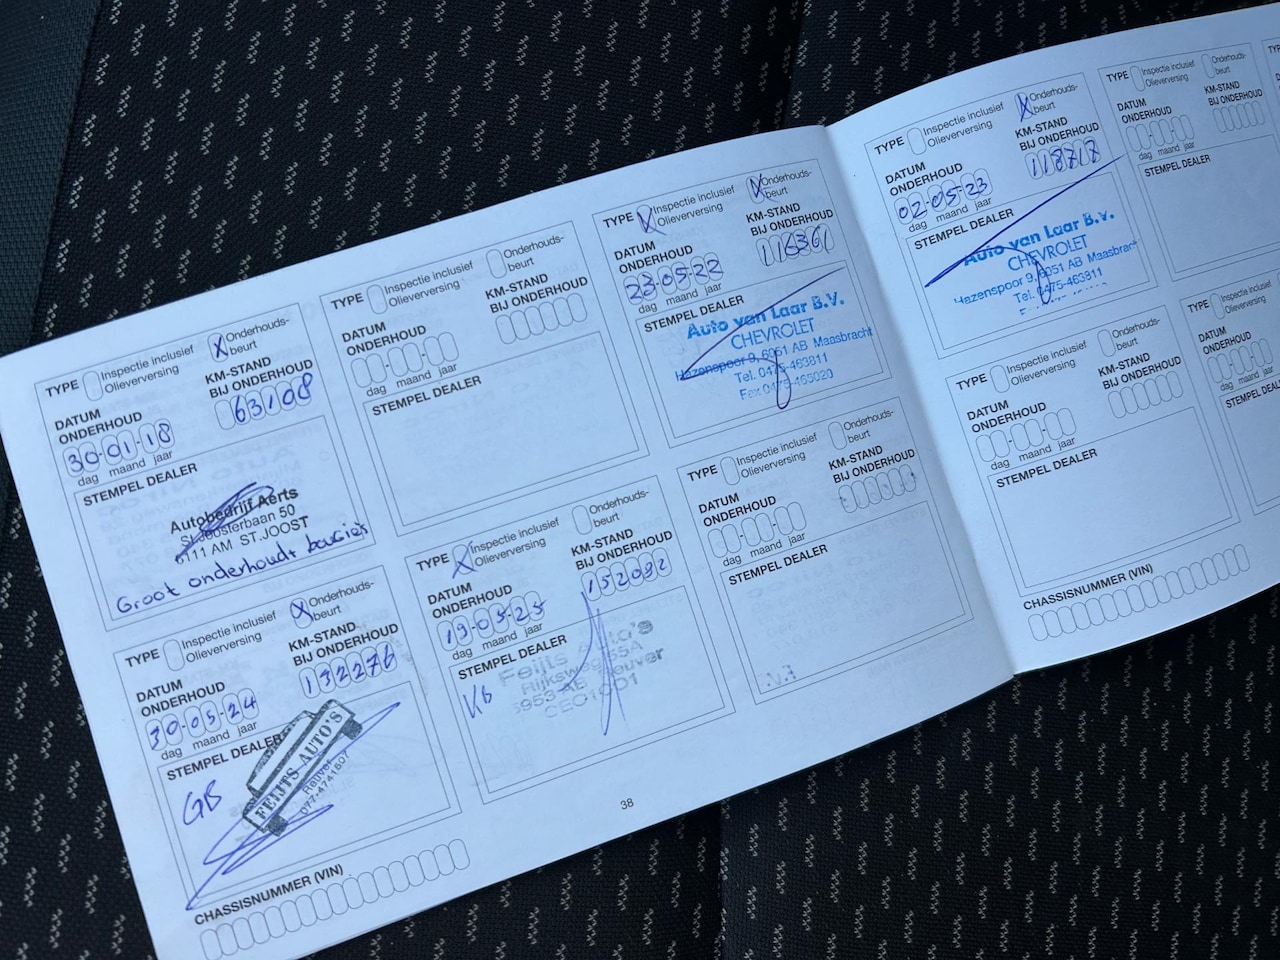 TYPE Inspectie inclusief Olieverversing X Onderhouds-beurt
DATUM ONDERHOUD
KM-STAND BIJ ONDERHOUD
30-01-18
63108
dag maand jaar
STEMPEL DEALER
Autobedrijf Aerts
St. Joosterbaan 50
6111 AM ST.JOOST
Groot onderhoudt bougies
TYPE Inspectie inclusief Olieverversing X Onderhouds-beurt
DATUM ONDERHOUD
KM-STAND BIJ ONDERHOUD
30-05-24
132276
dag maand jaar
STEMPEL DEALER
GB
FEIJTS AUTO'S
Reuver
077-4741607
CHASSISNUMMER (VIN)
TYPE Inspectie inclusief Olieverversing Onderhouds-beurt
DATUM ONDERHOUD
KM-STAND BIJ ONDERHOUD
dag maand jaar
STEMPEL DEALER
TYPE X Inspectie inclusief Olieverversing Onderhouds-beurt
DATUM ONDERHOUD
KM-STAND BIJ ONDERHOUD
19-05-25
152092
dag maand jaar
STEMPEL DEALER
Kb
Feijts Auto's
Reuver
TYPE X Inspectie inclusief Olieverversing X Onderhouds-beurt
DATUM ONDERHOUD
KM-STAND BIJ ONDERHOUD
23-05-22
116361
dag maand jaar
STEMPEL DEALER
Auto van Laar B.V.
CHEVROLET
Hazenspoor 9, 6051 AB Maasbracht
Tel. 0475-463811
Fax 0475-465020
TYPE Inspectie inclusief Olieverversing Onderhouds-beurt
DATUM ONDERHOUD
KM-STAND BIJ ONDERHOUD
dag maand jaar
STEMPEL DEALER
38
TYPE Inspectie inclusief Olieverversing X Onderhouds-beurt
DATUM ONDERHOUD
KM-STAND BIJ ONDERHOUD
02-05-23
118717
dag maand jaar
STEMPEL DEALER
Auto van Laar B.V.
CHEVROLET
Hazenspoor 9, 6051 AB Maasbracht
Tel. 0475-463811
TYPE Inspectie inclusief Olieverversing Onderhouds-beurt
DATUM ONDERHOUD
KM-STAND BIJ ONDERHOUD
dag maand jaar
STEMPEL DEALER
CHASSISNUMMER (VIN)
TYPE Inspectie inclusief Olieverversing Onderhouds-beurt
DATUM ONDERHOUD
KM-STAND BIJ ONDERHOUD
dag maand jaar
STEMPEL DEALER
TYPE Inspectie inclusief Olieverversing
DATUM ONDERHOUD
dag maand jaar
STEMPEL DEALER